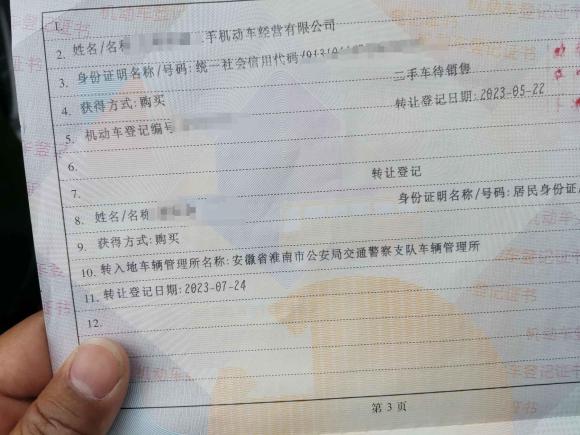 1.
2. 姓名/名称 手机动车经营有限公司
3. 身份证明名称/号码:统一社会信用代码
二手车待销售
4. 获得方式:购买
转让登记日期:2023-05-22
5. 机动车登记编号
6.
7. 转让登记
8. 姓名/名称
身份证明名称/号码:居民身份证
9. 获得方式:购买
10. 转入地车辆管理所名称:安徽省淮南市公安局交通警察支队车辆管理所
11. 转让登记日期:2023-07-24
12.
第 3 页